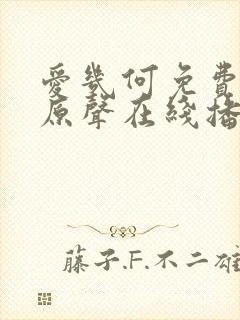 愛幾何免費
原聲在綫播
藤子.F.不二雄